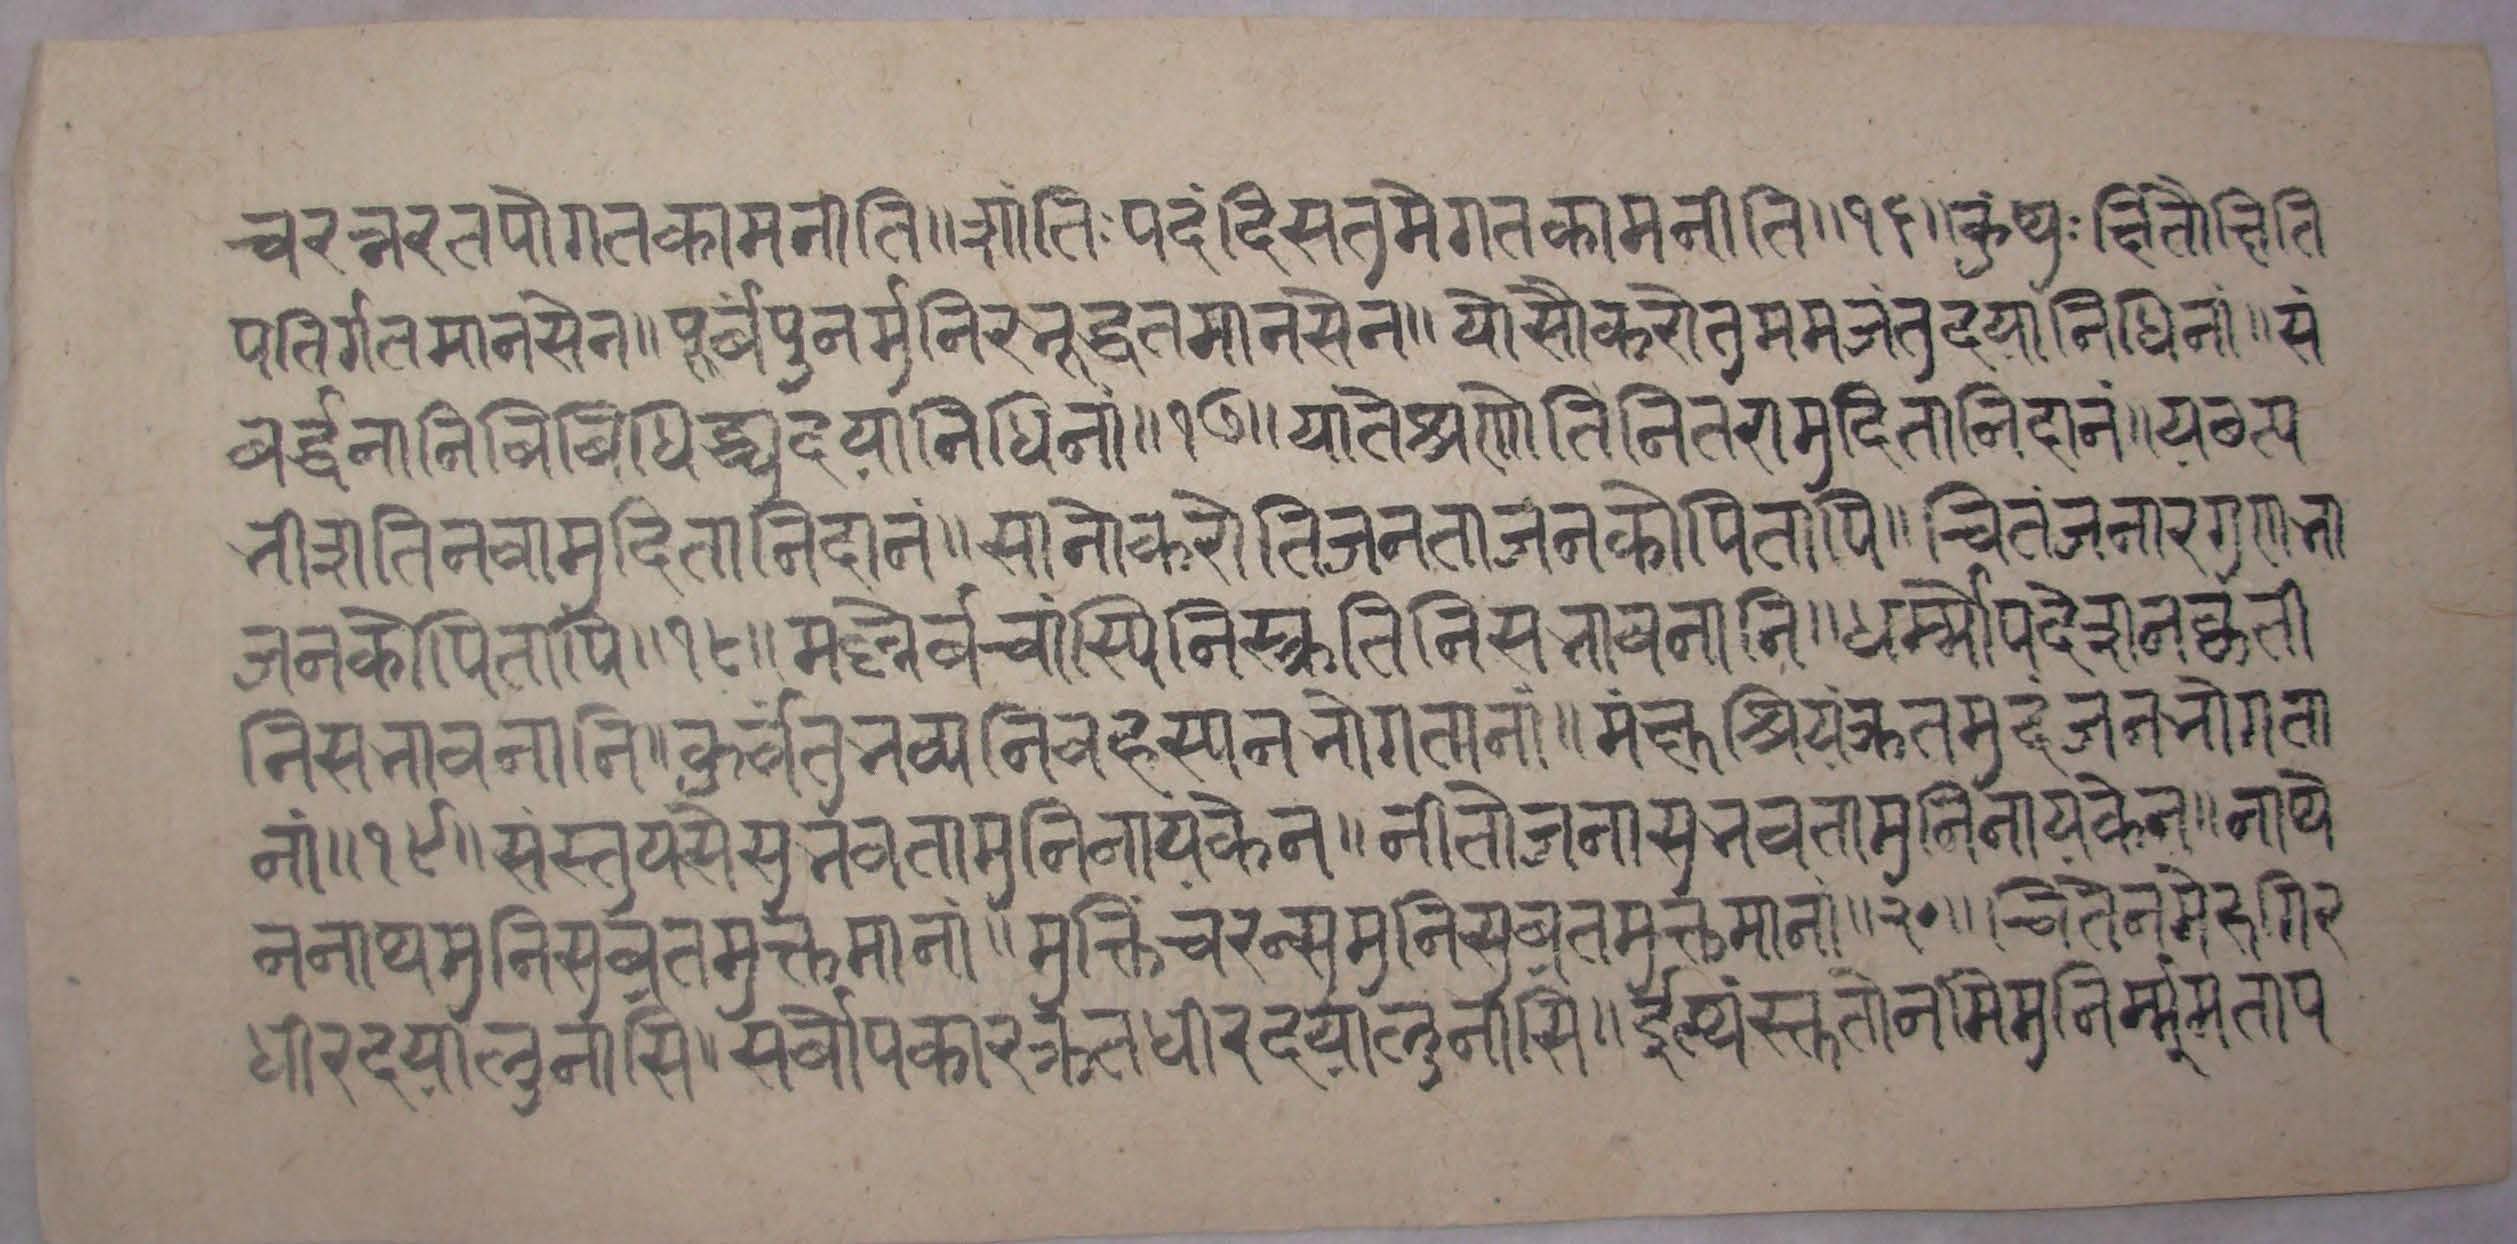 च्चरन्नरतपोगतकामनीति॥शांतिःपदंदिसतुमेगतकामनीति॥१६॥कुंथुःक्षितौक्षिति
पतिर्गतमानसेन॥पूर्वंपुनर्मुनिरभूद्धतमानसेन॥योसौकरोतुममजंतुदयानिधिनां॥सं
वर्द्धनानिविविधिर्द्ध्युदयानिधिनां॥१७॥यातेशृणोतिनितरामुदितानिदानं॥यछत्य
भीशतिनवामुदितानिदानं॥सानोकरोतिजनताजनकोपितापि॥चितंजनारगुणभा
जनकोपितापि॥१८॥मल्लेर्वचांस्पिनिस्कृतिनिसभावनानि॥धर्म्मोपदेशनकृती
निसभावनानि॥कुर्वंतुभव्यनिवहस्यनभोगतानां॥मंक्षुश्रियंकृतमुदंजनभोगता
नां॥१९॥संस्तुयसेसुभवतामुनिनायकेन॥नीतोजनासुभवतामुनिनायकेन॥नाथे
ननाथमुनिसुव्रतमुक्तमानां॥मुक्तिंचरन्समुनिसुव्रतमुक्तमानां॥२०॥चित्तेनमेरुगिर
धीरदयालुनासि॥सर्वोपकारकृतधीरदयालुनासि॥ईत्थंस्तुतोनमिमुनिर्म्मुमताप